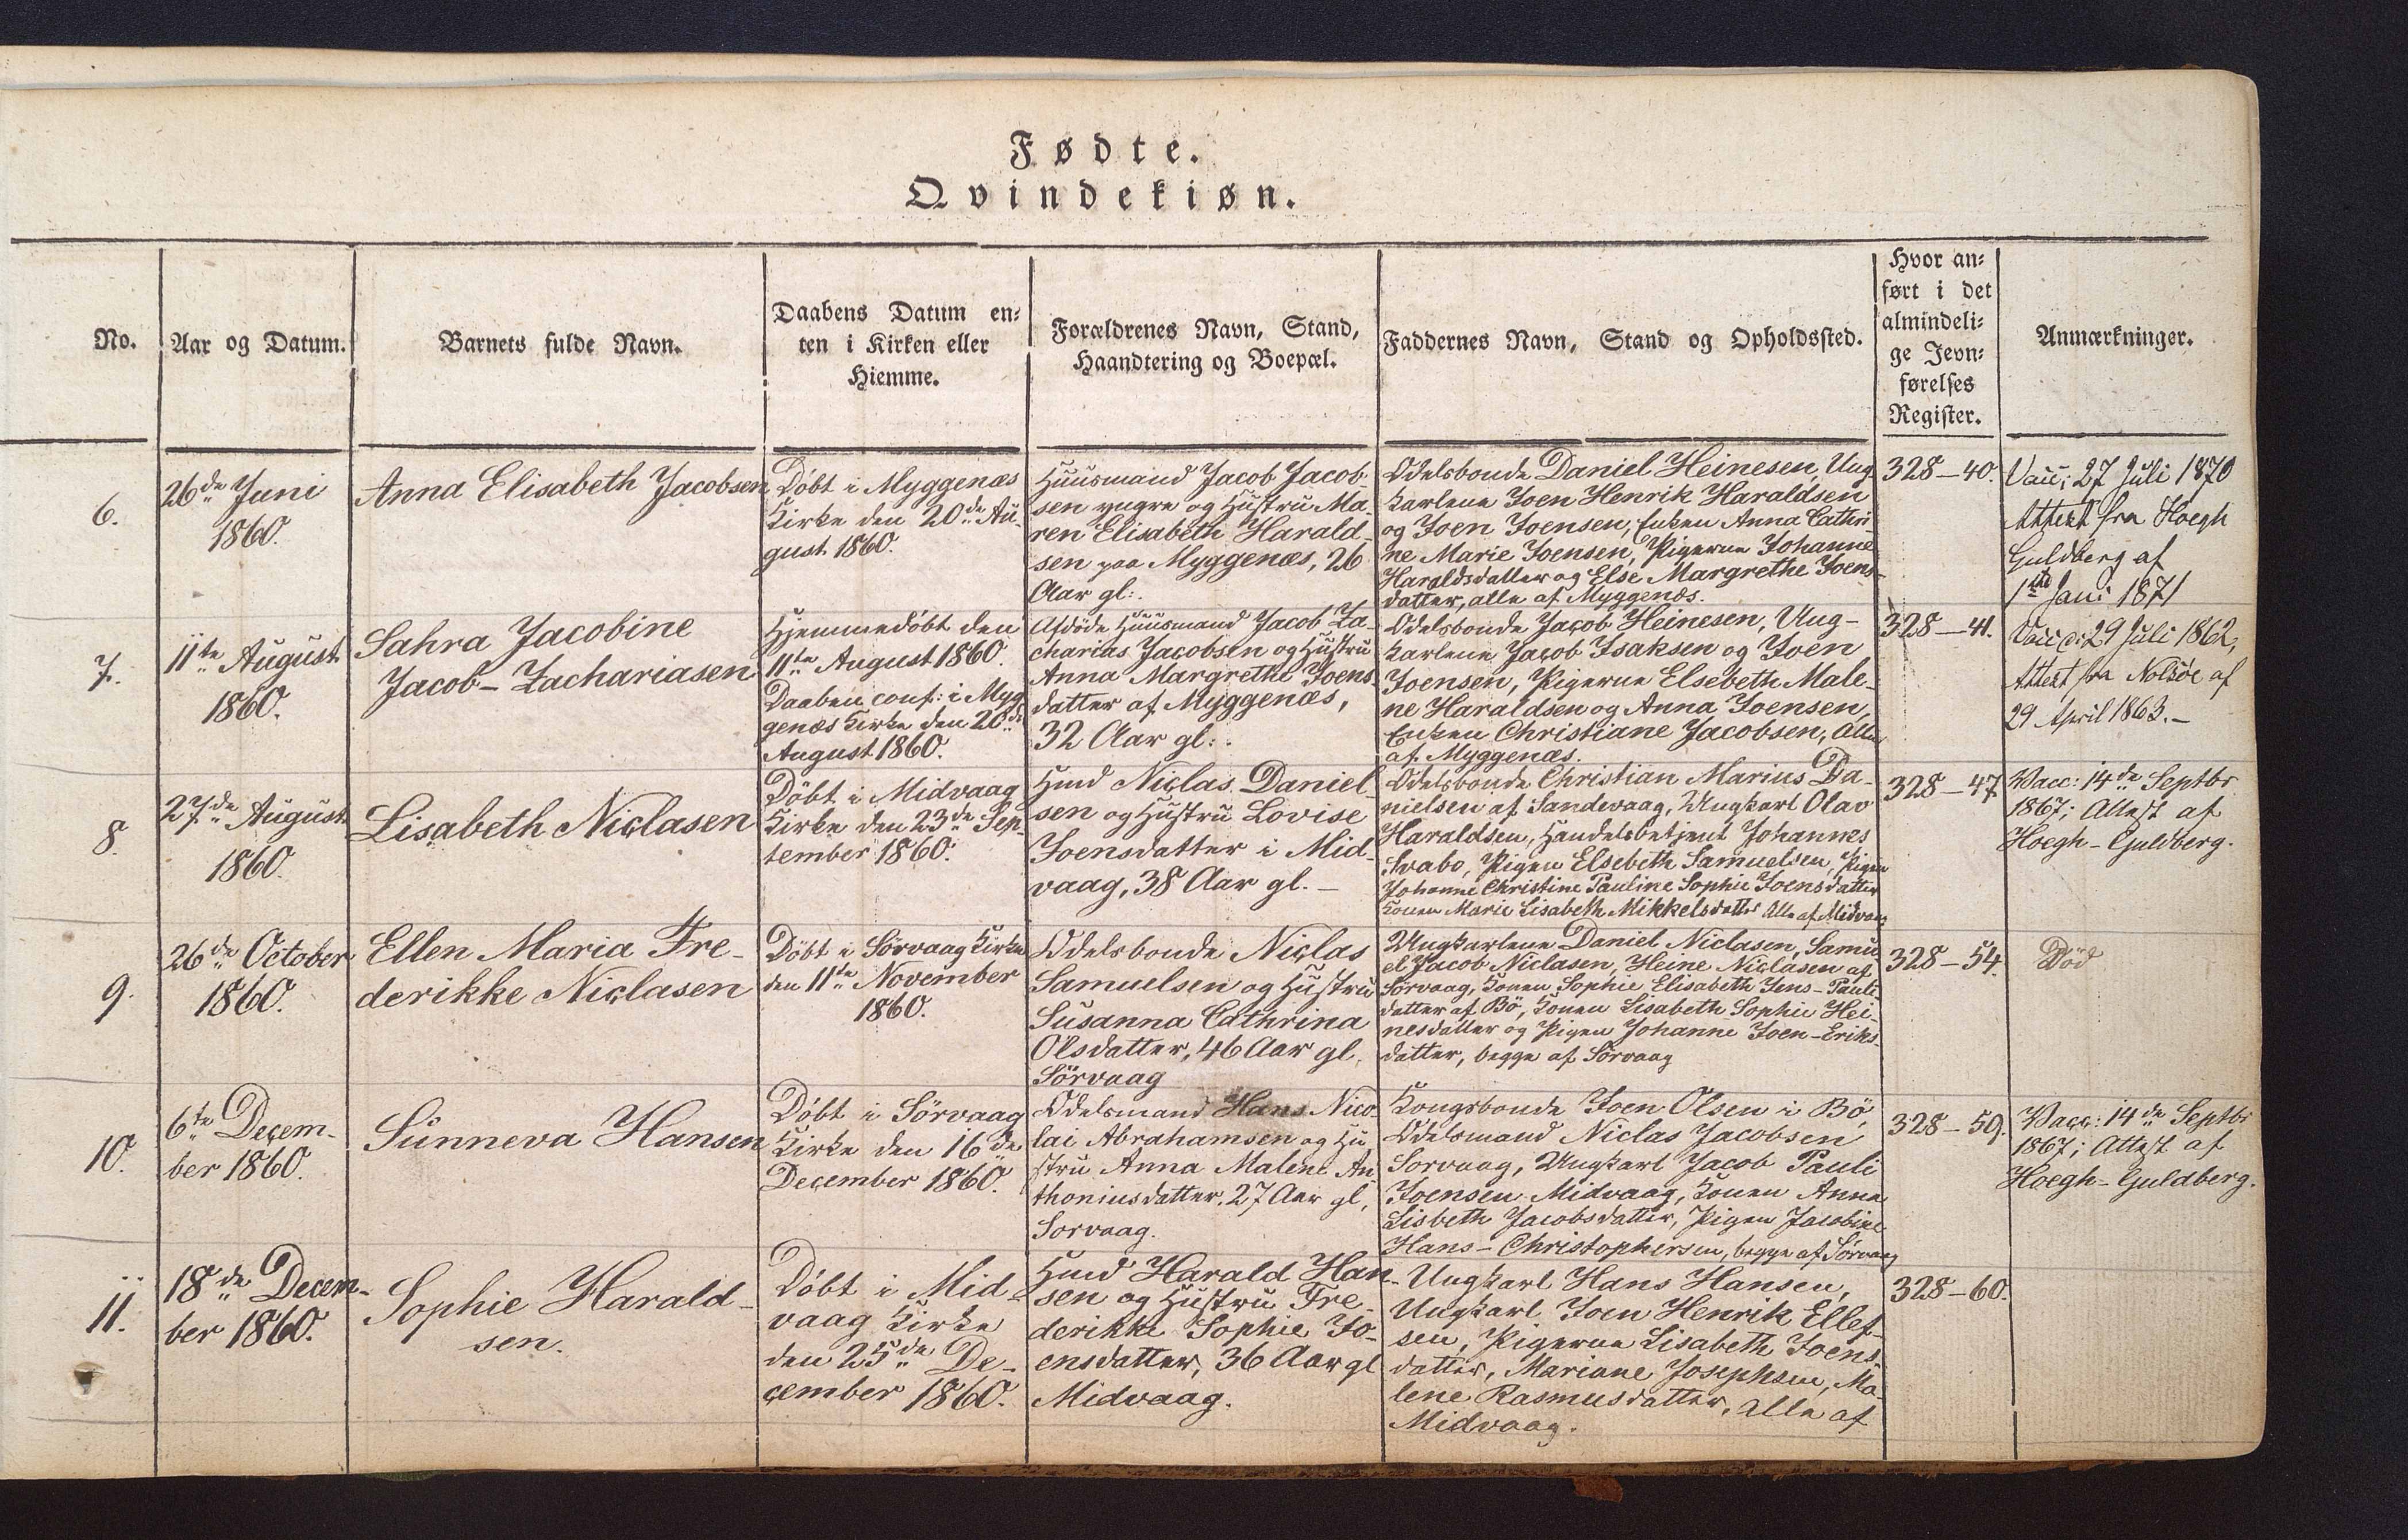 Fødte.
Qvindekiøn.
No.
Aar og Datum.
Barnets fulde Navn.
Daabens Datum en-
ten i Kirken eller
Hiemme.
Forældrenes Navn, Stand,
Haandtering og Boepæl.
Faddernes Navn, Stand og Opholdssted.
Hvor an-
ført i det
almindeli-
ge Jevn-
førelses
Register.
Anmærkninger.
6.
26de Juni
1860.
Anna Elisabeth Jacobsen
Döbt i Myggenæs
Kirke den 20de Au-
gust 1860.
Huusmand Jacob Jacob-
sen yngre og Hustru Ma-
ren Elisabeth Harald-
sen paa Myggenæs, 26
Aar gl:.
Odelsbonde Daniel Heinesen, Ung-
karlene Joen Henrik Haraldsen
og Joen Joensen, Enken Anna Cathri-
ne Marie Joensen, Pigerne Johanne
Haraldsdatter og Else Margrethe Joens-
datter, alle af Myggenæs.
328-40.
Vacc: 27 Juli 1870
Attest fra Hoegh
Guldberg af
1ste Juni 1871
7.
11te August
1860.
Sahra Jacobine
Jacob-Zachariasen
Hjemmedöbt den
11te August 1860.
Daaben conf: i Myg-
genæs Kirke den 20de
August 1860.
Afdöde Huusmand Jacob Za-
charias Jacobsen og Hustru
Anna Margrethe Joens-
datter af Myggenæs,
32 Aar gl:.
Odelsbonde Jacob Heinesen, Ung-
karlene Jacob Isaksen og Joen
Joensen, Pigerne Elsebeth Male-
ne Haraldsen og Anna Joensen,
Enken Christiane Jacobsen, Alle
af Myggenæs.
328-41.
Vacc: 29 Juli 1862,
Attest fra Nolsöe af
29 April 1863.-
8.
27de August
1860.
Lisabeth Niclasen
Döbt i Midvaag
Kirke den 23de Sep-
tember 1860.
Hmd Niclas Daniel-
sen og Hustru Lovise
Joensdatter i Mid-
vaag, 38 Aar gl.-
Odelsbonde Christian Marius Da-
nielsen af Sandevaag, Ungkarl Olav
Haraldsen, Handelsbetjent Johannes
Svabo, Pigen Elsebeth Samuelsen, Pigen
Johanne Christine Pauline Sophie Joensdatter
Konen Marie Lisabeth Mikkelsdatter Alle af Midvaag
328-47
Vacc: 14de Septbr
1867; Attest af
Hoegh-Guldberg.
9.
26de October
1860.
Ellen Maria Fre-
derikke Niclasen
Döbt i Sörvaag Kirke
den 11te November
1860.
Odelsbonde Niclas
Samuelsen og Hustru
Susanna Cathrina
Olsdatter, 46 Aar gl.
Sörvaag
Ungkarlene Daniel Niclasen, Samu-
el Jacob Niclasen, Heine Niclasen af
Sörvaag, Konen Sophie Elisabeth Jens-Pauli-
datter af Bö, Konen Lisabeth Sophie Hei-
nesdatter og Pigen Johanne Joen-Eriks-
datter, begge af Sörvaag
328-54.
Död
10.
6te Decem-
ber 1860.
Sunneva Hansen
Döbt i Sörvaag
Kirke den 16de
December 1860.
Odelsmand Hans Nico-
lai Abrahamsen og Hu-
stru Anna Malene An-
thoniusdatter, 27 Aar gl,
Sorvaag.
Kongsbonde Joen Olsen i Bö,
Odelsmand Niclas Jacobsen
Sorvaag, Ungkarl Jacob Pauli
Joensen Midvaag, Konen Anna
Lisbeth Jacobsdatter, Pigen Jacobine
Hans-Christophersen, begge af Sörvaag
328-59.
Vacc: 14de Septbr
1867; Attest af
Hoegh-Guldberg.
11.
18de Decem-
ber 1860.
Sophie Harald-
sen.
Döbt i Mid-
vaag Kirke
den 25de De-
cember 1860.
Hmd Harald Han-
sen og Hustru Fre-
derikke Sophie Jo-
ensdatter, 36 Aar gl
Midvaag.
Ungkarl Hans Hansen,
Ungkarl Joen Henrik Ellef-
sen, Pigerne Lisabeth Joens-
datter, Mariane Josephsen, Ma-
lene Rasmusdatter, Alle af
Midvaag.
328-60.